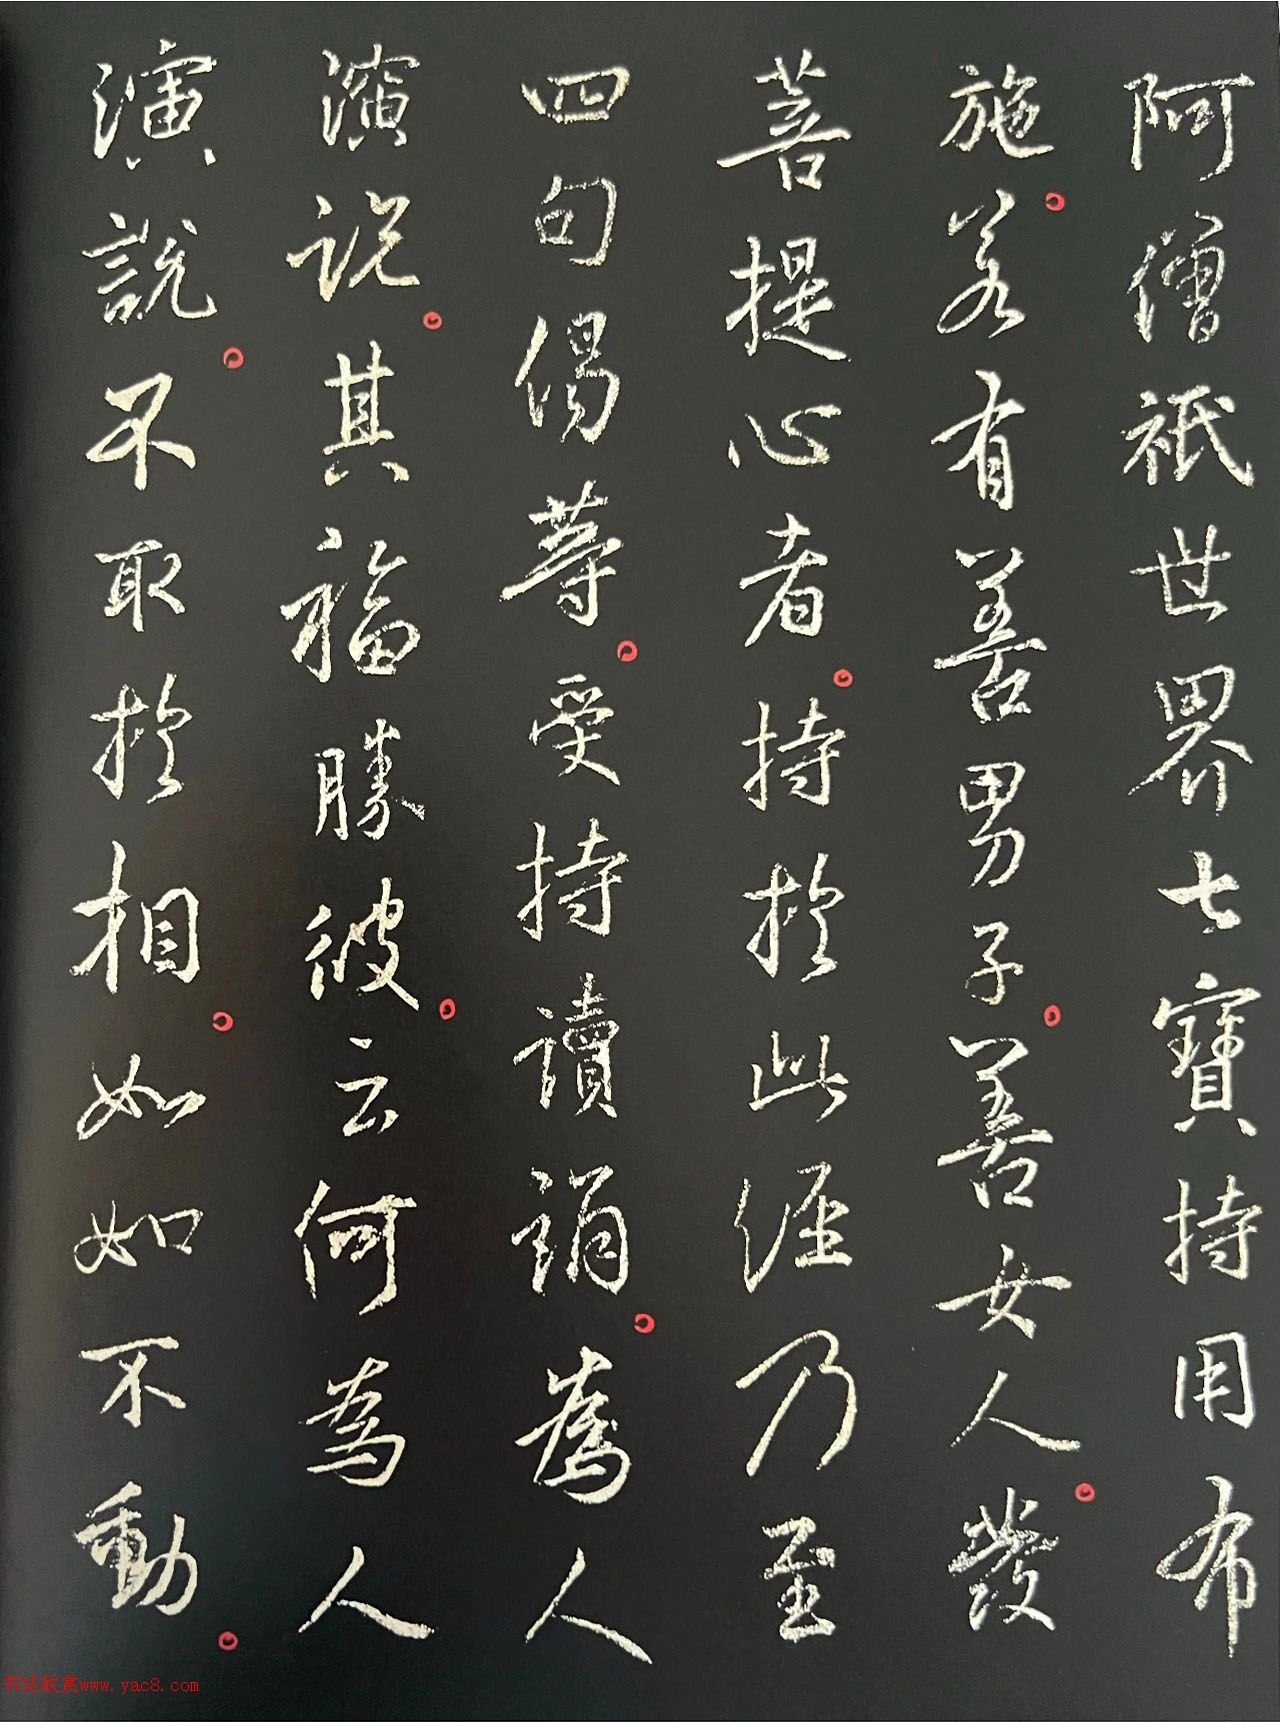 阿僧祇世界七寶持用布
施。若有善男子。善女人。發
菩提心者。持於此經乃至
四句偈等。受持讀誦。為人
演說。其福勝彼。云何為人
演說。不取於相。如如不動。
书法欣赏www.yac8.com